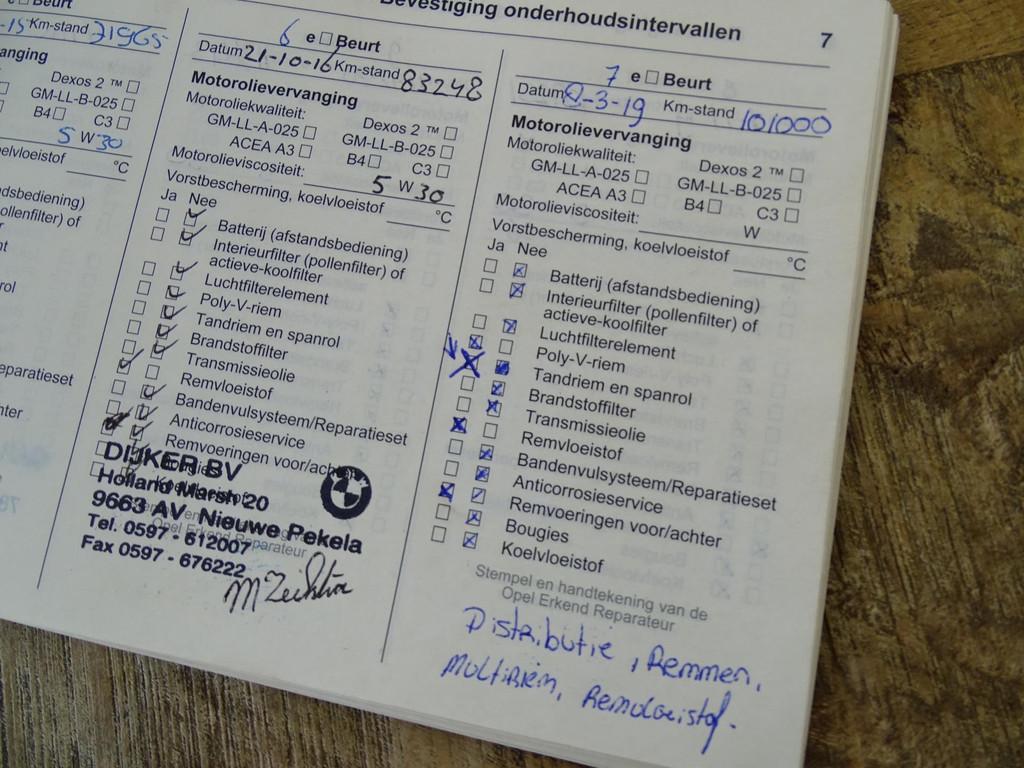 Bevestiging onderhoudsintervallen 7
e □ Beurt
-15 Km-stand 71965
anging
Dexos 2 ™ □
GM-LL-B-025 □
B4 □ C3 □
5 W 30
elvloeistof °C
dsbediening)
ollenfilter) of
rol
eparatieset
hter
6 e □ Beurt
Datum 21-10-16 Km-stand 83248
Motorolievervanging
Motoroliekwaliteit: Dexos 2 ™ □
GM-LL-A-025 □ GM-LL-B-025 □
ACEA A3 □ B4 □ C3 □
Motorolieviscositeit: 5 W 30
Vorstbescherming, koelvloeistof °C
Ja Nee
Batterij (afstandsbediening)
Interieurfilter (pollenfilter) of
actieve-koolfilter
Luchtfilterelement
Poly-V-riem
Tandriem en spanrol
Brandstoffilter
Transmissieolie
Remvloeistof
Bandenvulsysteem/Reparatieset
Anticorrosieservice
Remvoeringen voor/achter
DIJKER BV
Holland Marsh 20
9663 AV Nieuwe Pekela
Tel. 0597 - 612007
Opel Erkend Reparateur
Fax 0597 - 676222
7 e □ Beurt
Datum 8-3-19 Km-stand 101000
Motorolievervanging
Motoroliekwaliteit: Dexos 2 ™ □
GM-LL-A-025 □ GM-LL-B-025 □
ACEA A3 □ B4 □ C3 □
Motorolieviscositeit: W
Vorstbescherming, koelvloeistof °C
Ja Nee
Batterij (afstandsbediening)
Interieurfilter (pollenfilter) of
actieve-koolfilter
Luchtfilterelement
Poly-V-riem
Tandriem en spanrol
Brandstoffilter
Transmissieolie
Remvloeistof
Bandenvulsysteem/Reparatieset
Anticorrosieservice
Remvoeringen voor/achter
Bougies
Koelvloeistof
Stempel en handtekening van de
Opel Erkend Reparateur
Distributie, Remmen,
Multiriem, Remvloeistof.